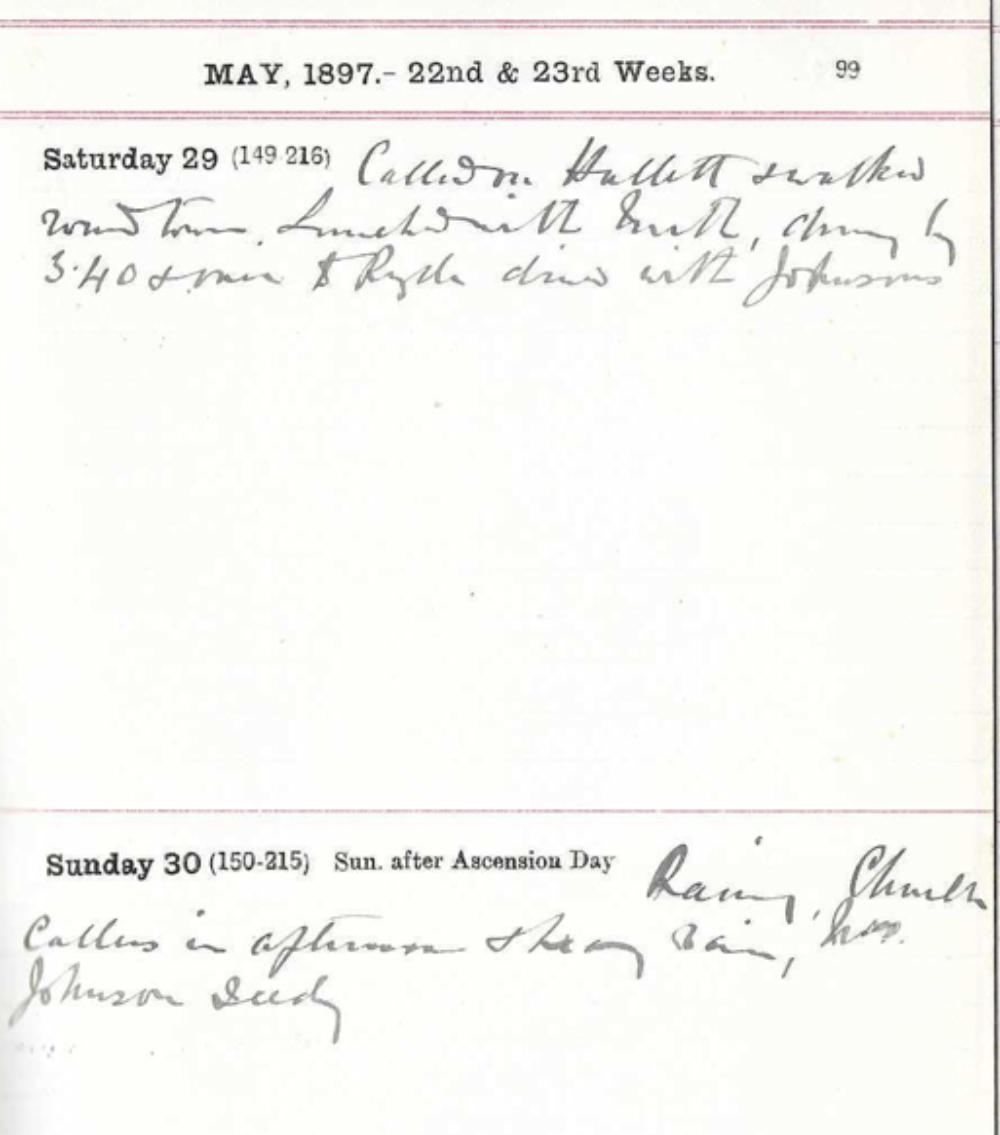 MAY, 1897.- 22nd & 23rd Weeks. 99
Saturday 29 (149-216) Called on Hullett & walked
round town. Lunched with Smith, by
3.40 & over to Ryde dined with Johnsons
Sunday 30 (150-215) Sun. after Ascension Day Rainy, Church
Callers in afternoon & heavy rain, Mrs.
Johnson seedy